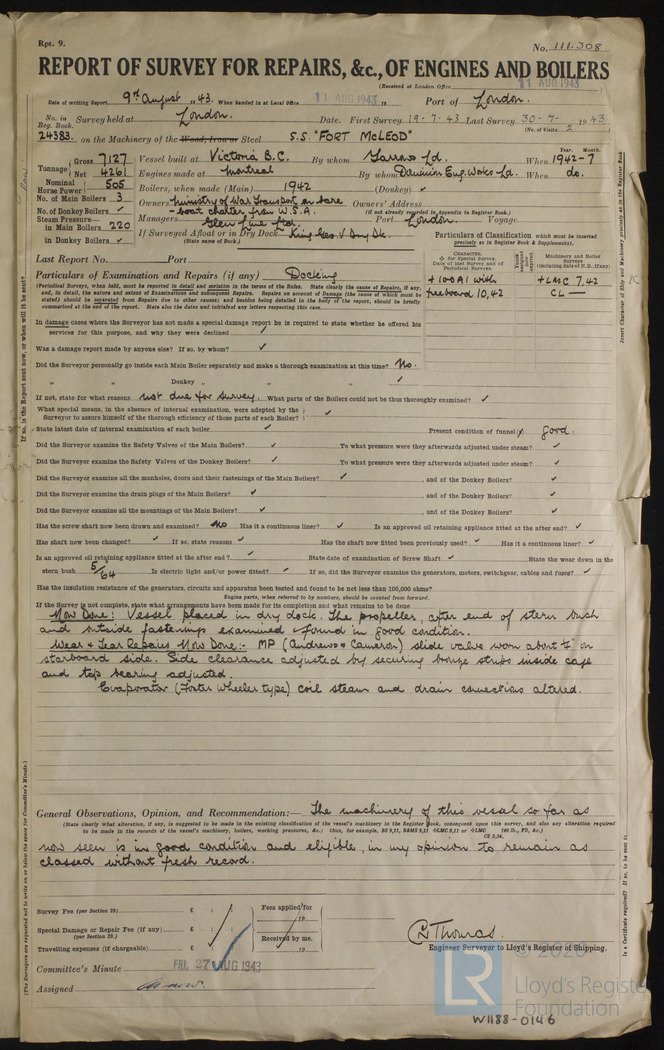 Rpt. 9.
No. 111.308
REPORT OF SURVEY FOR REPAIRS, &c., OF ENGINES AND BOILERS
(Received at London Office 11 AUG 1943
Date of writing Report 9th August 1943. When handed in at Local Office 11 AUG 1943 19 Port of London.
No. in Reg. Book. Survey held at London. Date. First Survey 19-7-43 Last Survey 30-7-1943
(No. of Visits 2)
24383. on the Machinery of the Wood, Iron or Steel S.S. "FORT McLEOD"
Tonnage Gross 7127 Net 4261
Vessel built at Victoria B.C. By whom Yarrows Ld. When 1942-7
Year. Month.
Engines made at Montreal By whom Dominion Eng. Works Ld. When do.
Nominal Horse Power 505
Boilers, when made (Main) 1942 (Donkey) ✓
No. of Main Boilers 3
Owners Ministry of War Transport on bare Owners' Address
-boat charter from W.S.A. (If not already recorded in Appendix to Register Book.)
No. of Donkey Boilers ✓
Managers Glen Line Ltd. Port London. Voyage
Steam Pressure in Main Boilers 220
in Donkey Boilers ✓
If Surveyed Afloat or in Dry Dock King Geo. V Dry Dk.
(State name of Dock.)
Particulars of Classification which must be inserted precisely as in Register Book & Supplements).
Last Report No. Port
CHARACTER. ✠ for Special Survey. Date of last Survey and of Periodical Surveys.
Machinery and Boiler Surveys (including date of N.B., if any)
+100A1 with +LMC 7,42
freeboard 10,42 CL —
Particulars of Examination and Repairs (if any) Docking
(Periodical Surveys, when held, must be reported in detail and seriatim in the terms of the Rules. State clearly the cause of Repairs, if any,
and, in detail, the nature and extent of Examinations and subsequent Repairs. Repairs on account of Damage (the cause of which must be
stated) should be separated from Repairs due to other causes; and besides being detailed in the body of the report, should be briefly
summarised at the end of the report. State also the dates and initials of any letters respecting this case.
In damage cases where the Surveyor has not made a special damage report he is required to state whether he offered his
services for this purpose, and why they were declined
Was a damage report made by anyone else? If so, by whom? ✓
Did the Surveyor personally go inside each Main Boiler separately and make a thorough examination at this time? No.
„ „ Donkey „ „ „ ✓
If not, state for what reasons not due for survey. What parts of the Boilers could not be thoroughly examined? ✓
What special means, in the absence of internal examination, were adopted by the
Surveyor to assure himself of the thorough efficiency of those parts of each Boiler? ✓
State latest date of internal examination of each boiler ✓ Present condition of funnel(s) good.
Did the Surveyor examine the Safety Valves of the Main Boilers? ✓ To what pressure were they afterwards adjusted under steam? ✓
Did the Surveyor examine the Safety Valves of the Donkey Boilers? ✓ To what pressure were they afterwards adjusted under steam? ✓
Did the Surveyor examine all the manholes, doors and their fastenings of the Main Boilers? ✓, and of the Donkey Boilers? ✓
Did the Surveyor examine the drain plugs of the Main Boilers? ✓, and of the Donkey Boilers? ✓
Did the Surveyor examine all the mountings of the Main Boilers? ✓, and of the Donkey Boilers? ✓
Has the screw shaft now been drawn and examined? No Has it a continuous liner? ✓ Is an approved oil retaining appliance fitted at the after end? ✓
Has shaft now been changed? ✓ If so, state reasons ✓ Has the shaft now fitted been previously used? ✓ Has it a continuous liner? ✓
Is an approved oil retaining appliance fitted at the after end? ✓ State date of examination of Screw Shaft ✓ State the wear down in the
stern bush 5/64 Is electric light and/or power fitted? ✓ If so, did the Surveyor examine the generators, motors, switchgear, cables and fuses? ✓
Has the insulation resistance of the generators, circuits and apparatus been tested and found to be not less than 100,000 ohms?
Engine parts, when referred to by numbers, should be counted from forward.
If the Survey is not complete, state what arrangements have been made for its completion and what remains to be done
Now Done: Vessel placed in dry dock. The propeller, after end of stern bush
and outside fastenings examined & found in good condition.
Wear & Tear Repairs Now Done:- MP (Andrews & Cameron) slide valve worn about ¼" on
starboard side. Side clearance adjusted by securing bronze strips inside cage
and top bearing adjusted.
Evaporator (Foster Wheeler type) coil steam and drain connections altered.
General Observations, Opinion, and Recommendation:— The machinery of this vessel so far as
(State clearly what alteration, if any, is suggested to be made in the existing classification of the vessel's machinery in the Register Book, consequent upon this survey, and also any alteration required
to be made in the records of the vessel's machinery, boilers, working pressures, &c.; thus, for example, BS 9,11, B&MS 9,11 ✠LMC 9,11 or ✠LMC 165 lb., FD, &c.)
CS 3,34.
now seen is in good condition and eligible, in my opinion to remain as
classed without fresh record.
Survey Fee (per Section 29) £ : :
Fees applied for 19
Special Damage or Repair Fee (if any) (per Section 29.) £ : :
Received by me, 19
Travelling expenses (if chargeable) £ : :
C Thomas.
Engineer Surveyor to Lloyd's Register of Shipping.
Committee's Minute FRI. 27 AUG 1943
Assigned As now.
© 2020
LR
Lloyd's Register
Foundation
W1188-0146